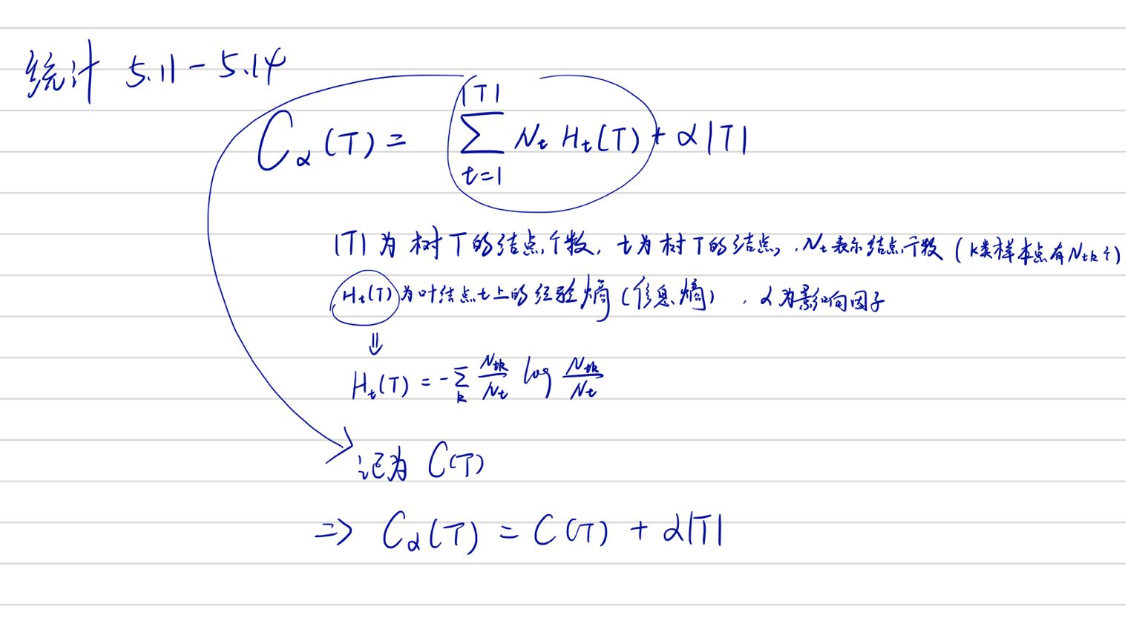 统计 5.11-5.14
C_α(T) = ∑_{t=1}^{|T|} N_t H_t(T) + α|T|
|T|为树T的结点个数, t为树T的结点, N_t表示结点个数 (k类样本点有N_{tk}个)
H_t(T)为叶结点t上的经验熵 (信息熵), α为影响因子
⇓
H_t(T) = -∑_k N_{tk}/N_t log N_{tk}/N_t
记为 C(T)
⇒ C_α(T) = C(T) + α|T|